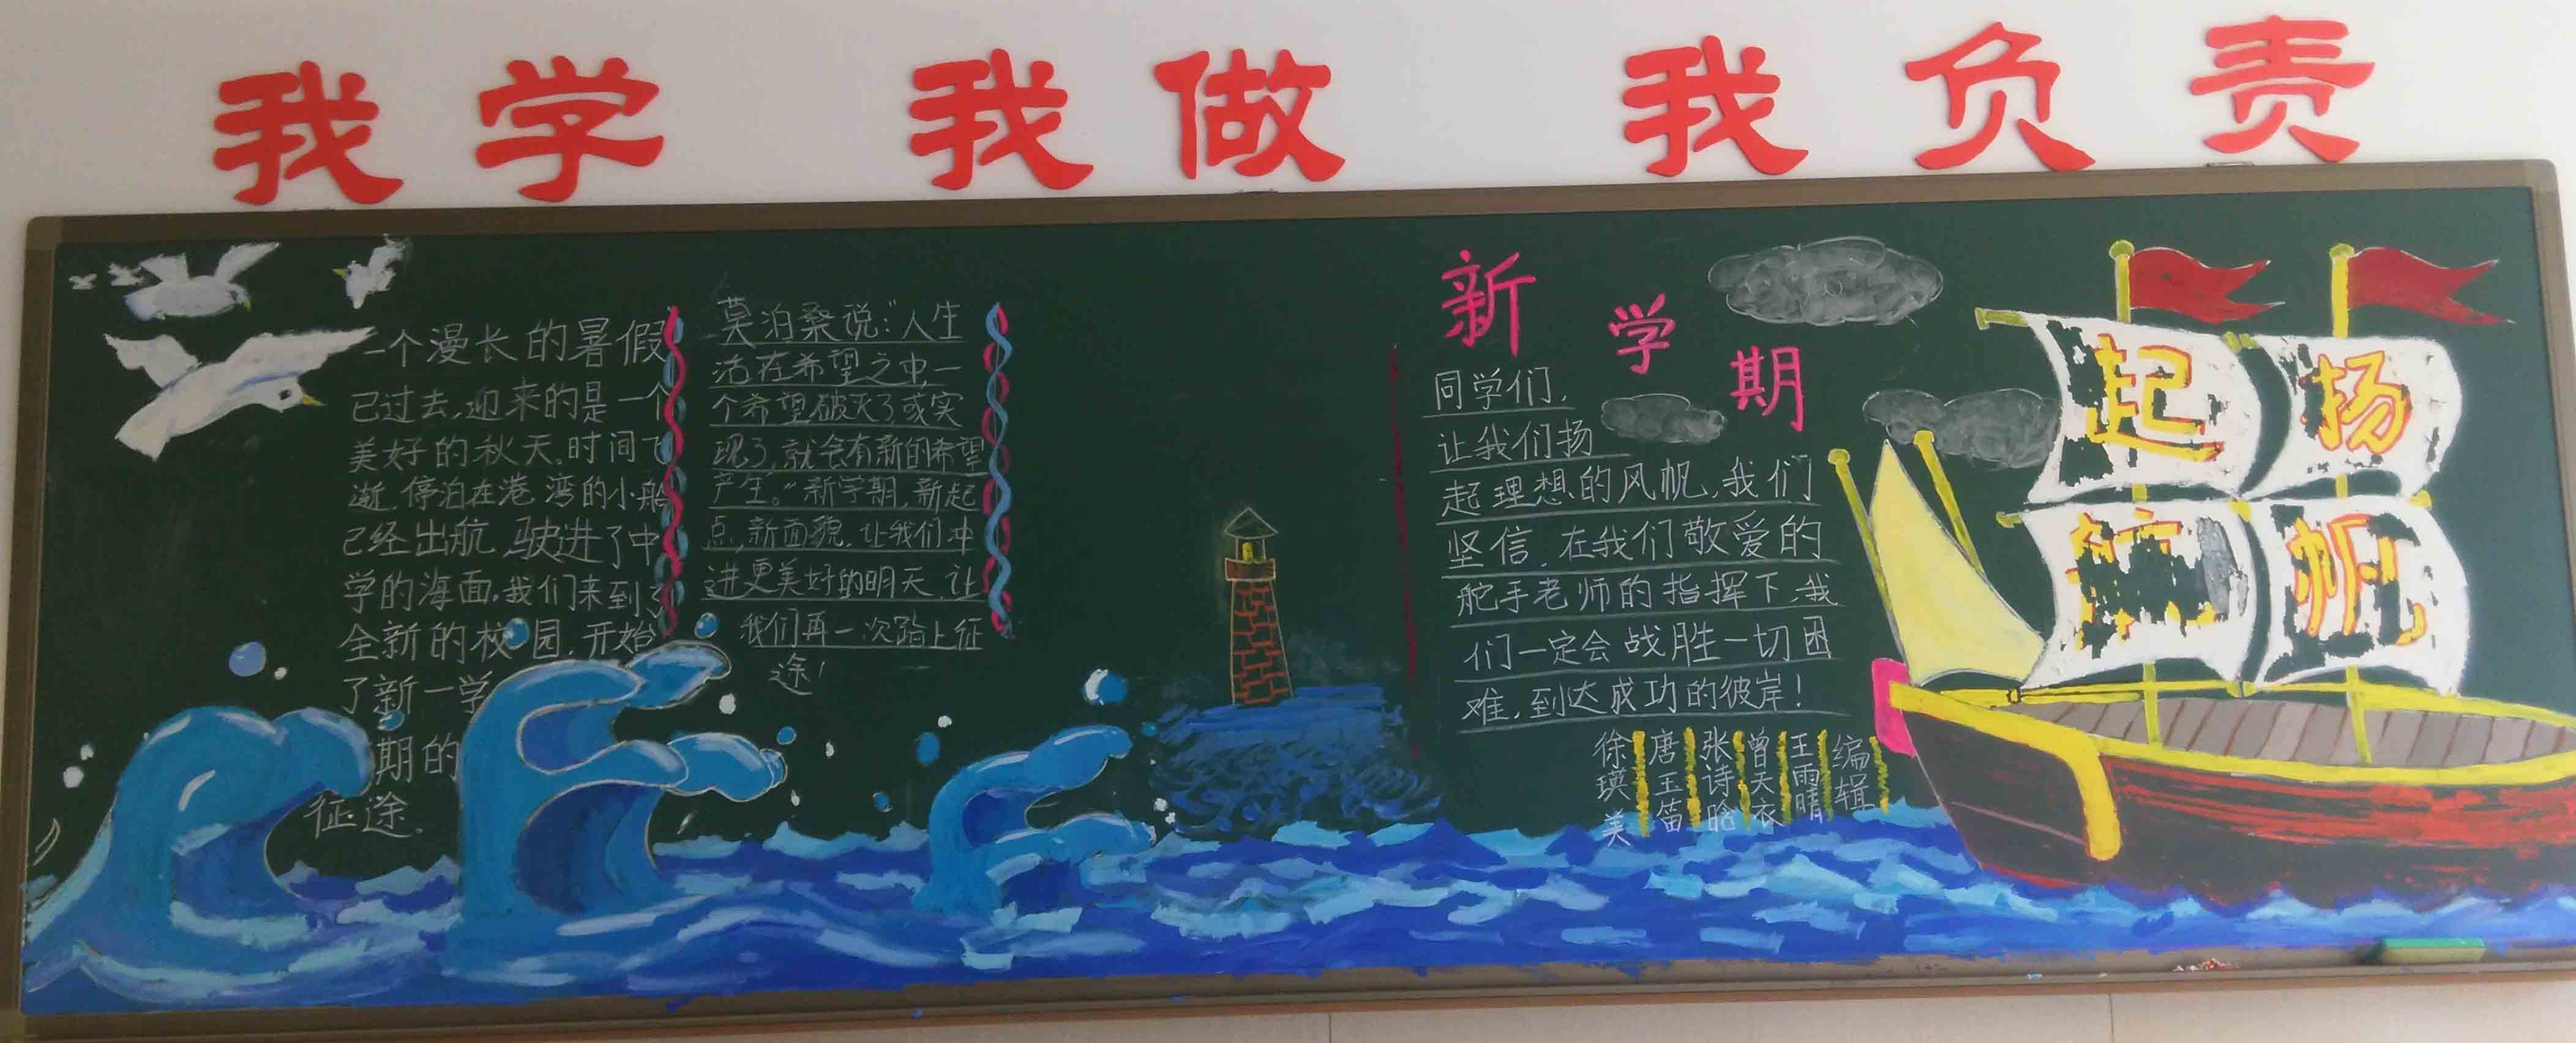 我学 我做 我负责
一个漫长的暑假
已过去,迎来的是一个
美好的秋天,时间飞
逝,停泊在港湾的小船
已经出航,驶进了中
学的海面。我们来到了
全新的校园,开始
了新一学
期的
征途。
莫泊桑说:“人生
活在希望之中,一
个希望破灭了或实
现了,就会有新的希望
产生。”新学期,新起
点,新面貌,让我们冲
进更美好的明天,让
我们再一次踏上征
途!
新学期
同学们,
让我们扬
起理想的风帆,我们
坚信,在我们敬爱的
舵手老师的指挥下,我
们一定会战胜一切困
难,到达成功的彼岸!
编辑
王雨晴
曾天衣
张诗晗
唐玉笛
徐瑛美
扬帆
起航